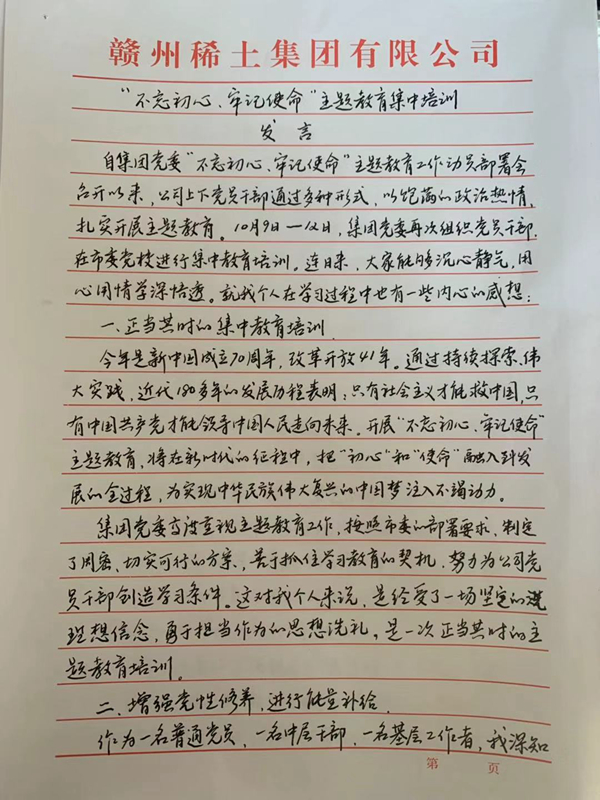 赣州稀土集团有限公司
“不忘初心、牢记使命”主题教育集中培训
发言
自集团党委“不忘初心、牢记使命”主题教育工作动员部署会
召开以来，公司上下党员干部通过多种形式，以饱满的政治热情，
扎实开展主题教育。10月9日—12日，集团党委再次组织党员干部，
在市委党校进行集中教育培训。连日来，大家能够沉心静气，用
心用情学深悟透。就我个人在学习过程中也有一些内心的感想：
一、正当其时的集中教育培训
今年是新中国成立70周年，改革开放41年。通过持续探索、伟
大实践，近代180多年的发展历程表明：只有社会主义才能救中国，只
有中国共产党才能领导中国人民走向未来。开展“不忘初心、牢记使命”
主题教育，将在新时代的征程中，把“初心”和“使命”融入到发
展的全过程，为实现中华民族伟大复兴的中国梦注入不竭动力。
集团党委高度重视主题教育工作，按照市委的部署要求，制定
了周密、切实可行的方案，善于抓住学习教育的契机，努力为公司党
员干部创造学习条件。这对我个人来说，是经受了一场坚定的
理想信念，勇于担当作为的思想洗礼。是一次正当其时的主
题教育培训。
二、增强党性修养，进行能量补给
作为一名普通党员，一名中层干部，一名基层工作者，我深知
第 页